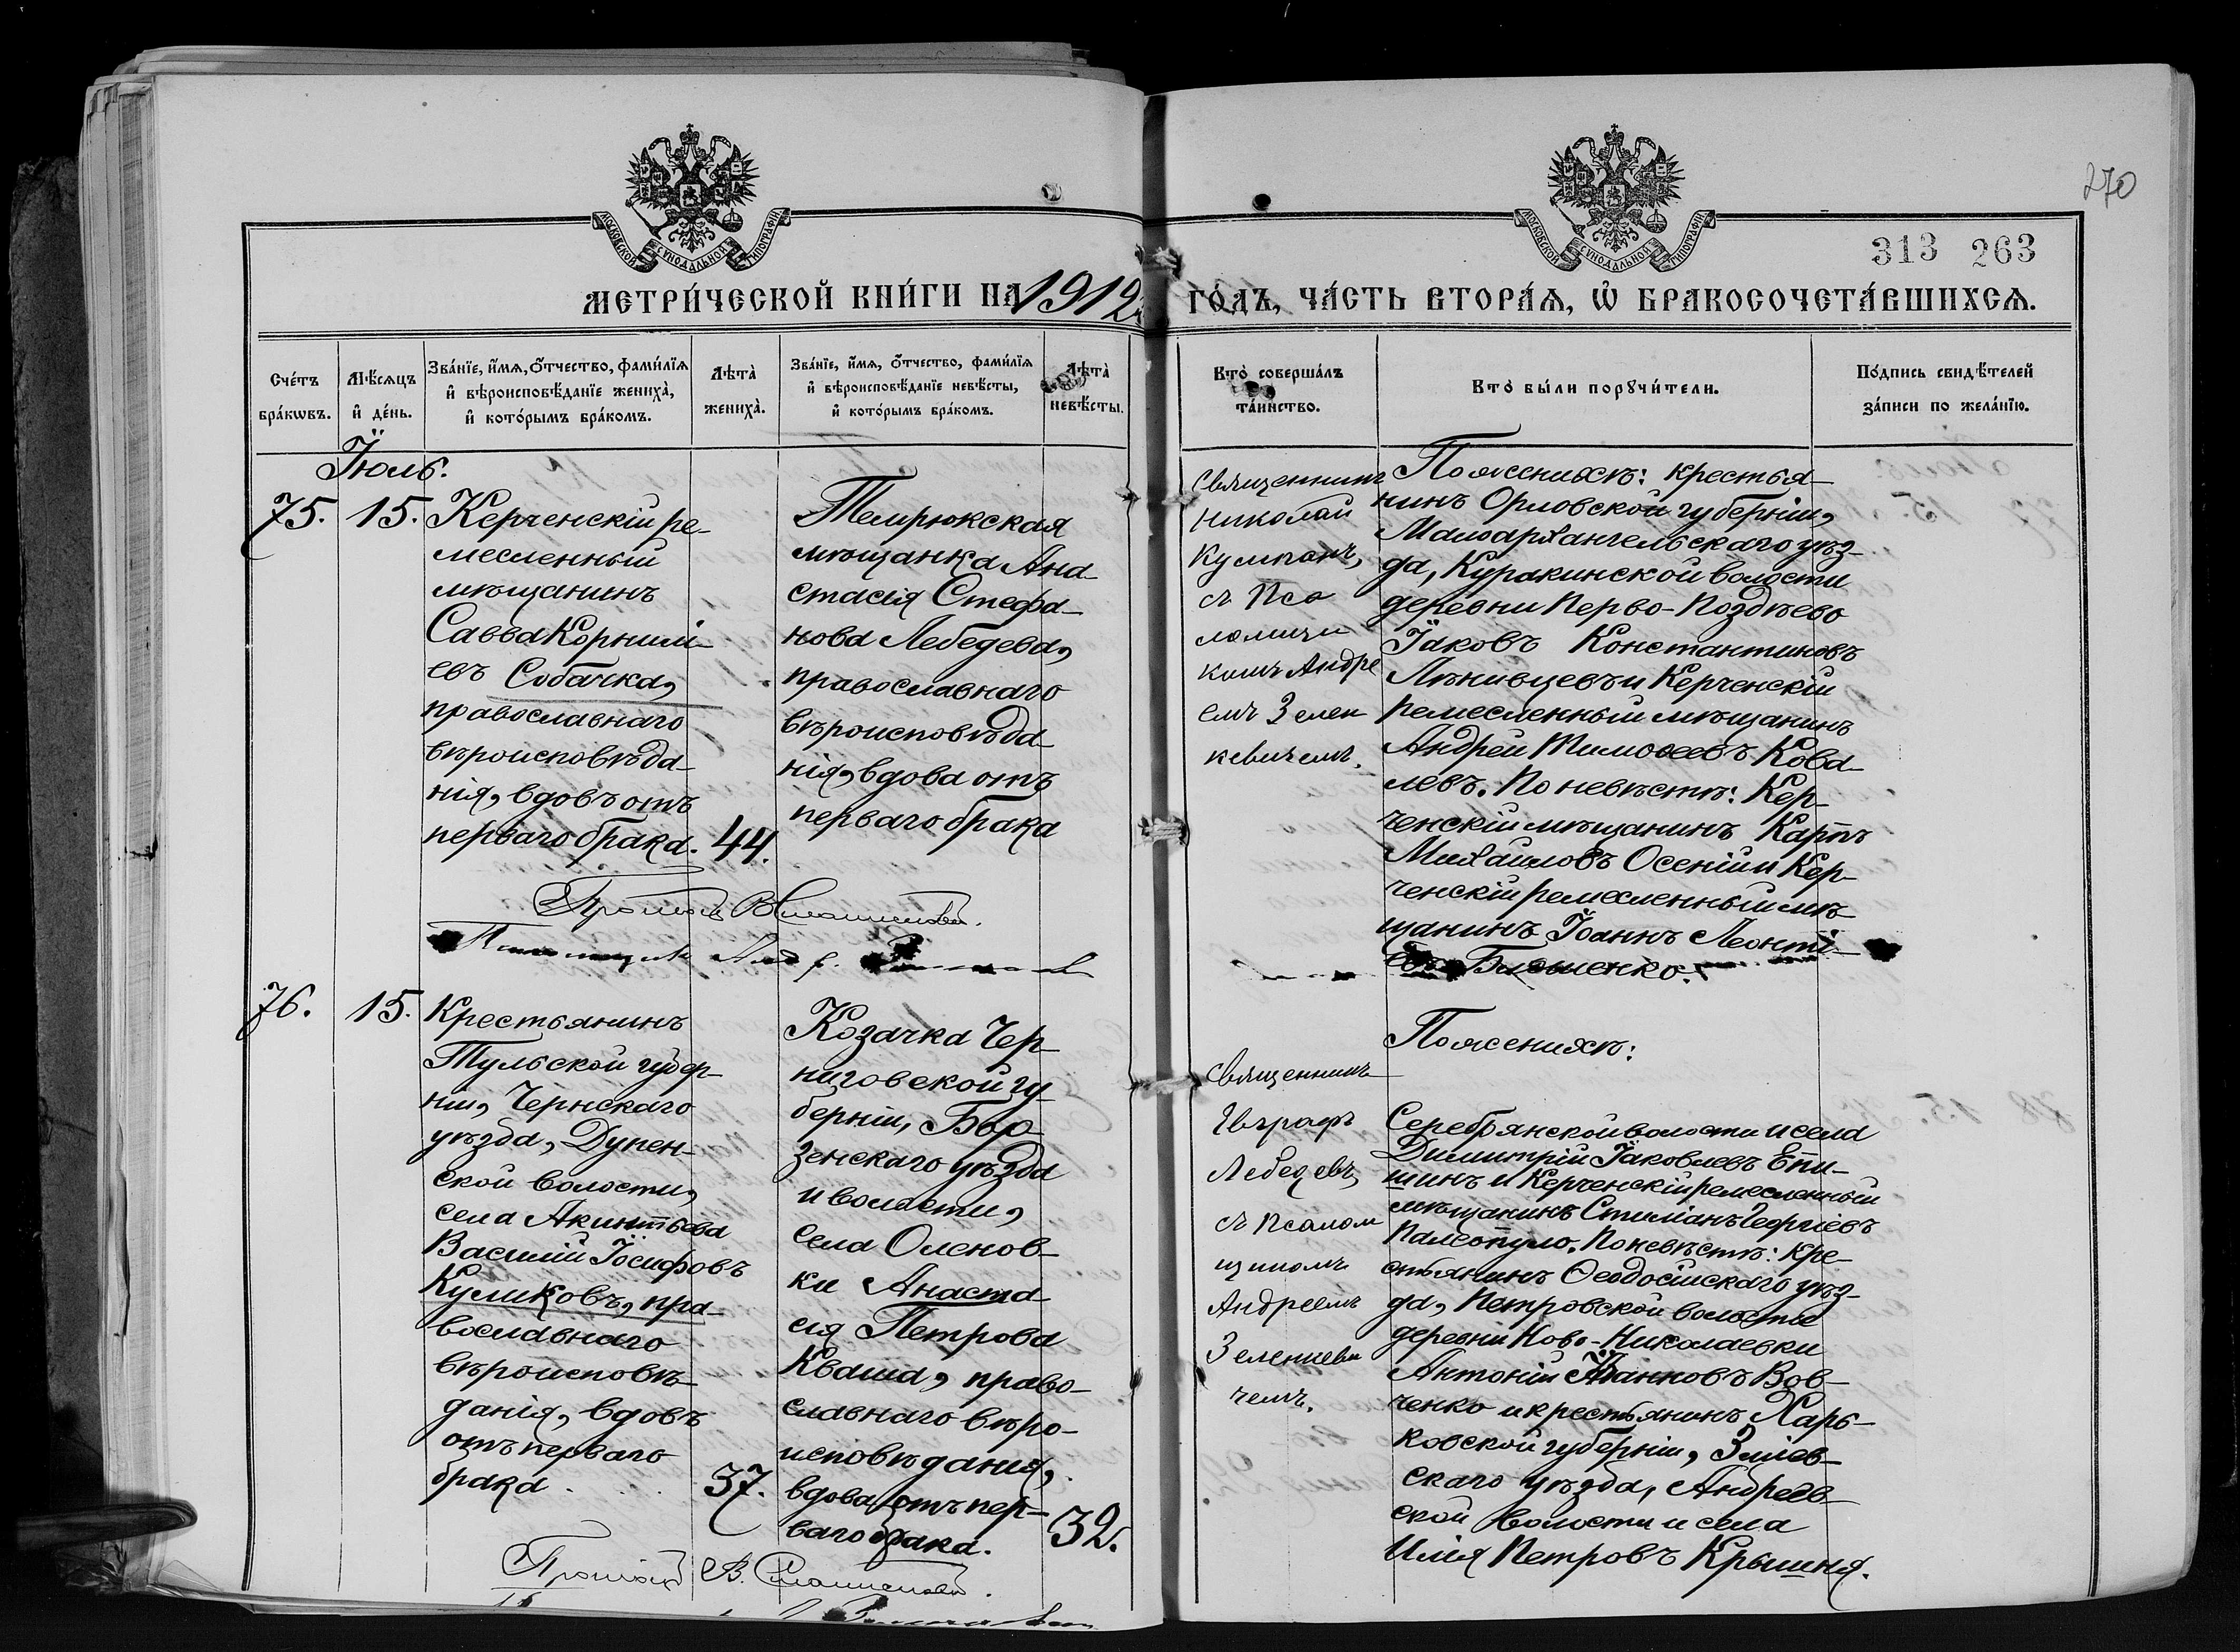 270
313 263
МОСКОВСКОЙ СѴНОДАЛЬНОЙ ТИПОГРАФІИ
МОСКОВСКОЙ СѴНОДАЛЬНОЙ ТИПОГРАФІИ
МЕТРИ́ЧЕСКОЙ КНИ́ГИ НА 1912 ГО́ДЪ, ЧА́СТЬ ВТОРА́Ѧ, Ѡ҆ БРАКОСОЧЕТА́ВШИХСѦ.
Сче́тъ бра́кѡвъ.
Мѣ́сѧцъ и҆ де́нь.
Зва́нїе, и҆́мѧ, ѻ҆́тчество, фами́лїѧ и҆ вѣроисповѣ́данїе жениха̀, и҆ кото́рымъ бра́комъ.
Лѣ́та̀ жениха̀.
Зва́нїе, и҆́мѧ, ѻ҆́тчество, фами́лїѧ и҆ вѣроисповѣ́данїе невѣ́сты, и҆ кото́рымъ бра́комъ.
Лѣ́та̀ невѣ́сты.
Кто̀ соверша́лъ та́инство.
Кто̀ бы́ли порꙋчи́тели.
По́дпись свидѣ́телей за́писи по жела́нїю.
Іюль.
75. 15.
Керченскій ре-
месленный
мѣщанинъ
Савва Корнилі-
евъ Собачка,
православнаго
вѣроисповѣда-
нія, вдовъ отъ
перваго брака. 44.
Темрюкская
мѣщанка Ана-
стасія Стефа-
нова Лебедева,
православнаго
вѣроисповѣда-
нія, вдова отъ
перваго брака
Священникъ
Николай
съ Пса
ломщи
комъ Андре
емъ Зелен
кевичемъ.
По женихѣ: крестья-
нинъ Орловской губерніи,
Малоархангельскаго уѣз-
да, Куракинской волости
деревни Перво-Поздѣево
Іаковъ Константиновъ
Лѣнивцевъ и Керченскій
ремесленный мѣщанинъ
Андрей Тимоѳеевъ Кова-
левъ. По невѣстѣ: Кер-
ченскій мѣщанинъ Карпъ
Михайловъ Осеній и Кер-
ченскій ремесленный мѣ-
щанинъ Іоаннъ Леонті-
евъ
76. 15.
Крестьянинъ
Тульской губер-
ніи, Чернскаго
уѣзда, Дупен-
ской волости,
села Акинтьева
Василій Іосифовъ
Куликовъ, пра-
вославнаго
вѣроисповѣ-
данія, вдовъ
отъ перваго
брака 37.
Козачка Чер-
ниговской гу-
берніи, Бор-
зенскаго уѣзда
и волости,
села Оленов-
ки Анаста-
сія Петрова
Кваша, право-
славнаго вѣро-
исповѣданія,
вдова отъ пер-
ваго брака. 32.
Священникъ
Евграфъ
Лебедевъ
съ псалом
щикомъ
Андреемъ
Зеленкеви
чемъ.
По женихѣ:
Серебрянской волости и села
Димитрій Іаковлевъ Епи-
шинъ и Керченскій ремесленный
мѣщанинъ Стиліанъ Георгіевъ
Палеопуло. По невѣстѣ: кре-
стьянинъ Ѳеодосійскаго уѣз-
да, Петровской волости
деревни Ново-Николаевки
Антоній Іоанновъ Вов-
ченко и крестьянинъ Харь-
ковской губерніи, Зміев-
скаго уѣзда, Андреев-
ской волости и села
Илія Петровъ Крышня.